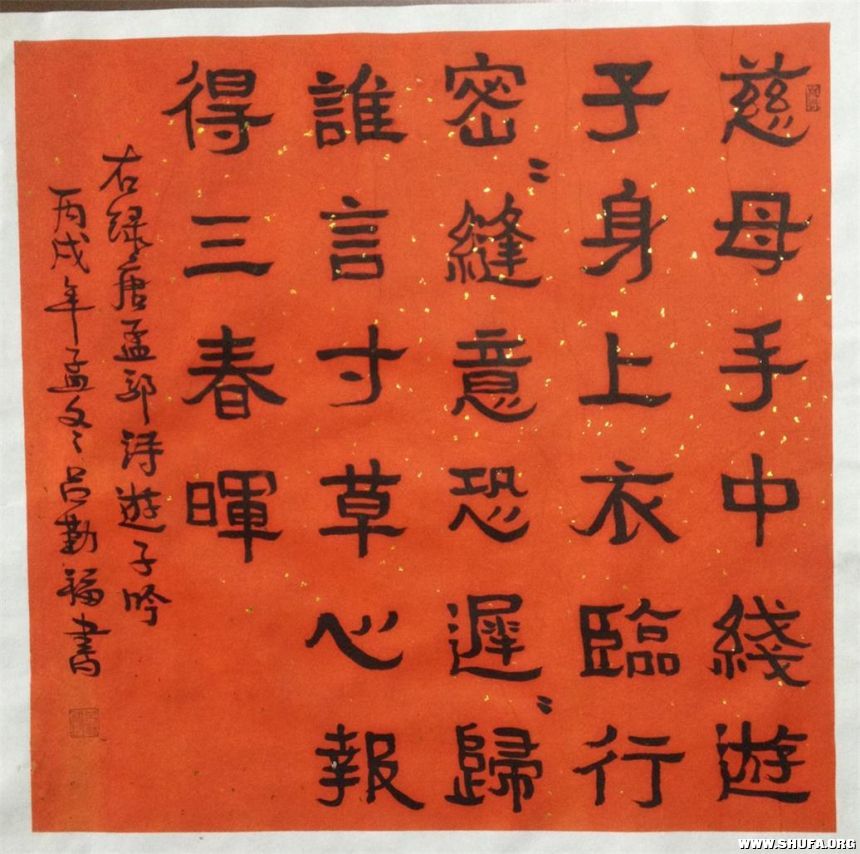 慈母手中綫遊
子身上衣臨行
密〻縫意恐遲〻歸
誰言寸草心報
得三春暉
右録唐孟郊詩遊子吟
丙戌年孟冬〻吕勤福書
WWW.SHUFA.ORG